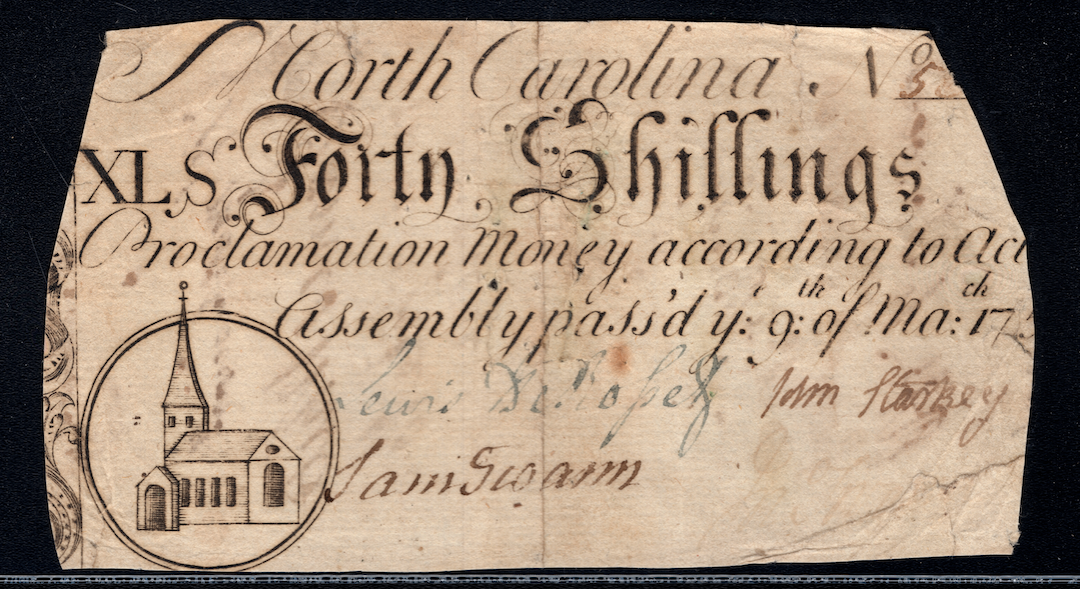 North Carolina No 5
XLS Forty Shillings
Proclamation Money according to Act
Assembly pass'd ye: 9:th of Ma:ch 17
Lewis DeRosset John Starkey
Sam Swann